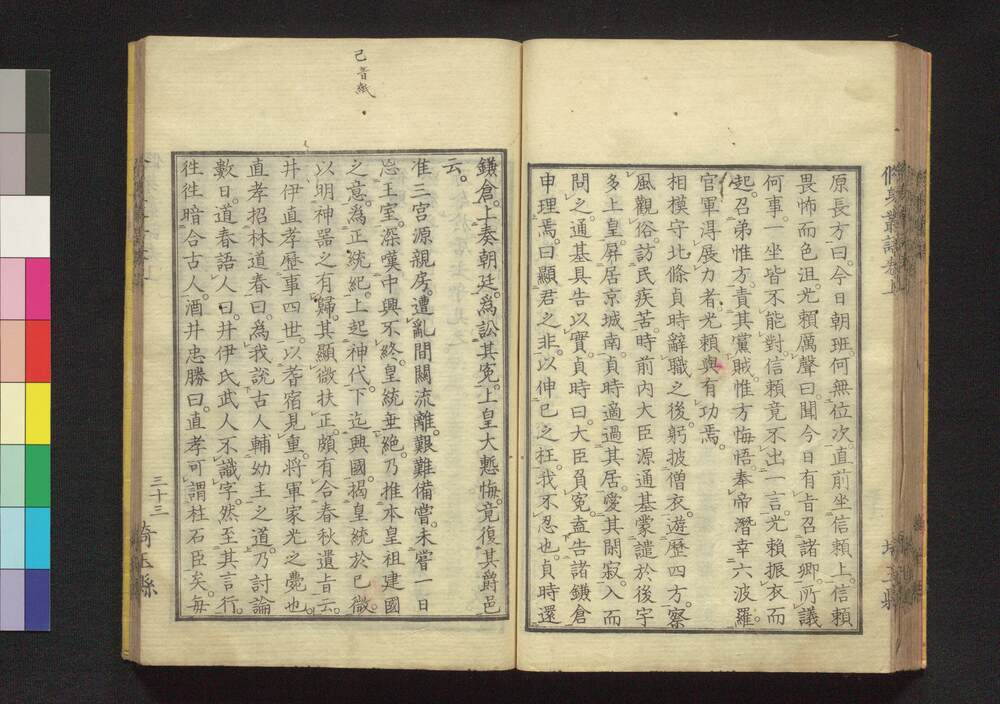 原長方曰。今日朝班。何無位次。直前坐信賴上。信賴
畏怖而色沮。光賴厲聲曰。聞今日有旨召諸卿。所議
何事。一坐皆不能對。信賴竟不出一言。光賴振衣而
起。召弟惟方。責其黨賊。惟方悔悟。奉帝潛幸六波羅。
官軍得展力者。光賴與有功焉。
相模守北條貞時辭職之後。躬披僧衣。遊歷四方。察
風觀俗。訪民疾苦。時前內大臣源通基蒙譴於後宇
多上皇。屏居京城南。貞時適過其居。愛其閑寂。入而
問之。通基具告以實。貞時曰。大臣負冤。盍告諸鎌倉
申理焉。曰。顯君之非。以伸己之枉。我不忍也。貞時還
鎌倉。上奏朝廷。爲訟其冤。上皇大慙悔。竟復其爵邑
云。
准三宮源親房。遭亂間關流離。艱難備嘗。未嘗一日
忘王室。深嘆中興不終。皇統垂絕。乃推本皇祖建國
之意。爲正統紀。上起神代。下迄興國。揭皇統於已微。
以明神器之有歸。其顯微扶正。頗有合春秋遺旨云。
井伊直孝歷事四世。以耆宿見重。將軍家光之薨也。
直孝招林道春曰。爲我說古人輔幼主之道。乃討論
數日。道春語人曰。井伊氏武人不識字。然至其言行。
往往暗合古人。酒井忠勝曰。直孝可謂柱石臣矣。每
己音紙
三十三
埼玉縣